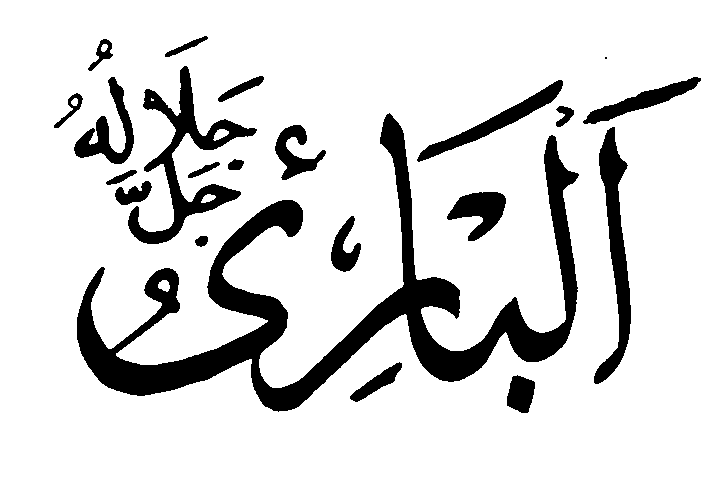 اَلْبَارِئُ
جَلَّ جَلَالُهُ